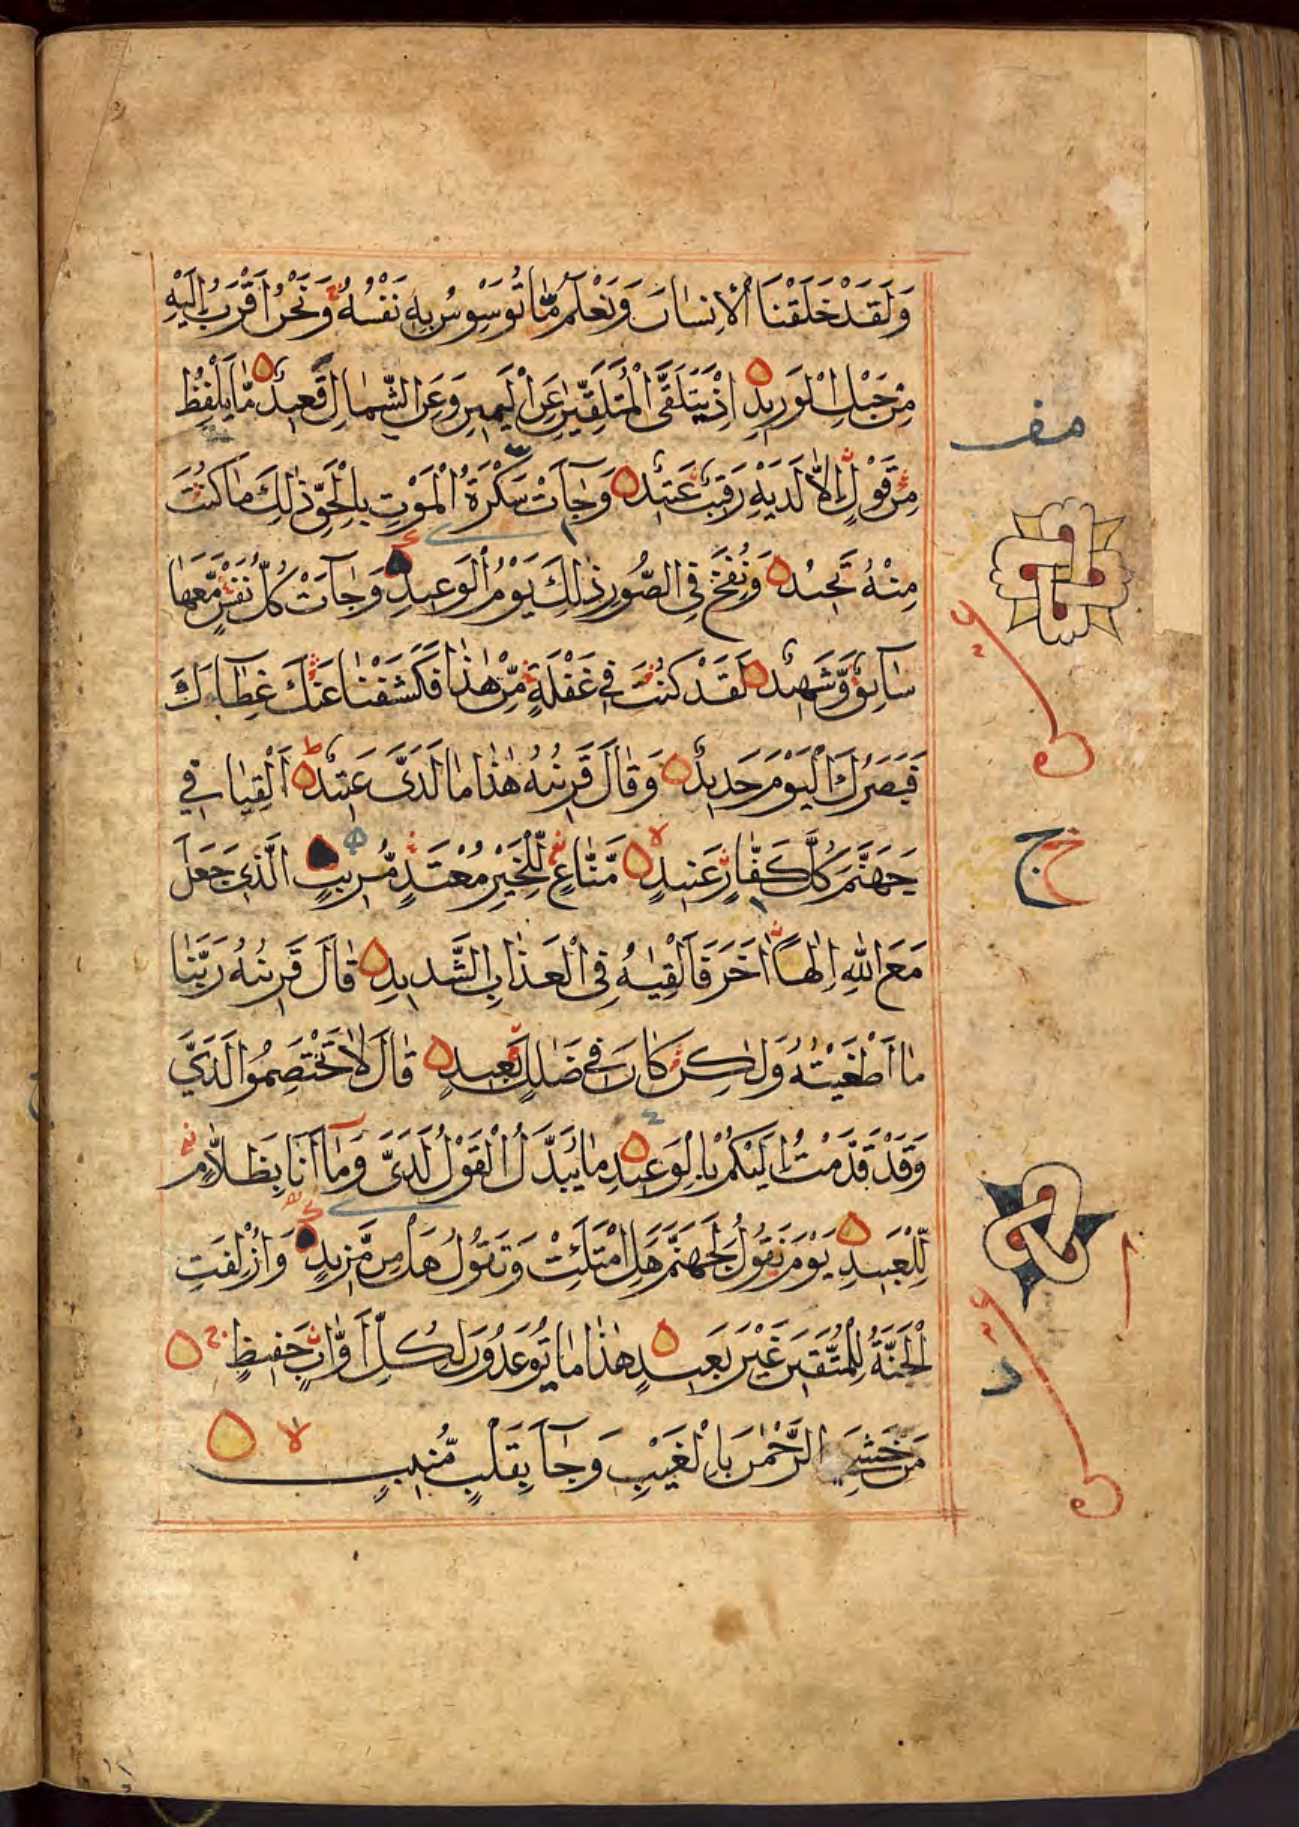 وَلَقَدْ خَلَقْنَا الْاِنسَانَ وَنَعْلَمُ مَا تُوَسْوِسُ بِهِ نَفْسُهُ وَنَحْنُ اَقْرَبُ اِلَيْهِ
مِنْ حَبْلِ الْوَرِيدِ اِذْ يَتَلَقَّى الْمُتَلَقِّيٰنِ عَنِ الْيَمِينِ وَعَنِ الشِّمَالِ قَعِيدٌ مَّا يَلْفِظُ
مِنْ قَوْلٍ اِلَّا لَدَيْهِ رَقِيبٌ عَتِيدٌ وَجَآءَتْ سَكْرَةُ الْمَوْتِ بِالْحَقِّ ذٰلِكَ مَا كُنْتَ
مِنْهُ تَحِيدُ وَنُفِخَ فِي الصُّورِ ذٰلِكَ يَوْمُ الْوَعِيدِ وَجَآءَتْ كُلُّ نَفْسٍ مَّعَهَا
سَآئِقٌ وَّشَهِيدٌ لَقَدْ كُنْتَ فِي غَفْلَةٍ مِّنْ هٰذَا فَكَشَفْنَا عَنْكَ غِطَآءَكَ
فَبَصَرُكَ الْيَوْمَ حَدِيدٌ وَقَالَ قَرِينُهُ هٰذَا مَا لَدَيَّ عَتِيدٌ اَلْقِيَا فِي
جَهَنَّمَ كُلَّ كَفَّارٍ عَنِيدٍ مَّنَّاعٍ لِّلْخَيْرِ مُعْتَدٍ مُّرِيبٍ الَّذِي جَعَلَ
مَعَ اللّٰهِ اِلٰهًا اٰخَرَ فَاَلْقِيٰهُ فِي الْعَذَابِ الشَّدِيدِ قَالَ قَرِينُهُ رَبَّنَا
مَا اَطْغَيْتُهُ وَلٰكِنْ كَانَ فِي ضَلٰلٍ بَعِيدٍ قَالَ لَا تَخْتَصِمُوا لَدَيَّ
وَقَدْ قَدَّمْتُ اِلَيْكُمْ بِالْوَعِيدِ مَا يُبَدَّلُ الْقَوْلُ لَدَيَّ وَمَآ اَنَا بِظَلَّامٍ
لِّلْعَبِيدِ يَوْمَ نَقُولُ لِجَهَنَّمَ هَلِ امْتَلَئْتِ وَتَقُولُ هَلْ مِنْ مَّزِيدٍ وَاُزْلِفَتِ
الْجَنَّةُ لِلْمُتَّقِينَ غَيْرَ بَعِيدٍ هٰذَا مَا تُوعَدُونَ لِكُلِّ اَوَّابٍ حَفِيظٍ
مَنْ خَشِيَ الرَّحْمٰنَ بِالْغَيْبِ وَجَآءَ بِقَلْبٍ مُّنِيبٍ